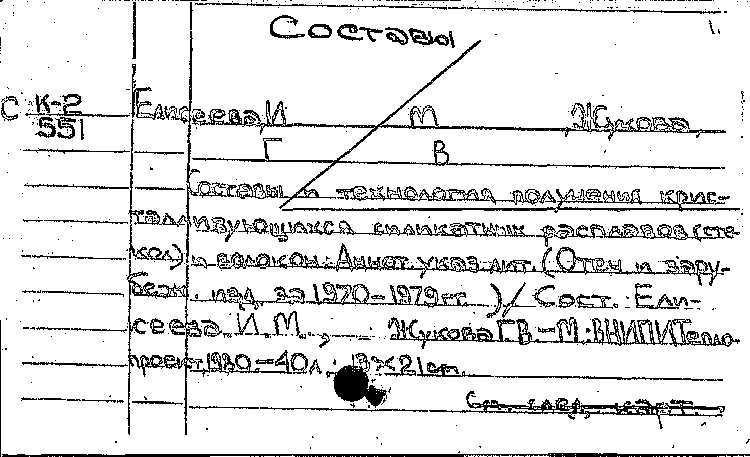 Составы 1.
С К-2
551
Елисеева, И М , Жукова,
Г В
Составы и технология получения крис-
таллизующихся силикатных расплавов (сте-
кол) и волокон: Аннот. указ. лит. (Отеч и зару-
беж. изд. за 1970-1979гг )/ Сост. Ели-
сеева. И.М., Жукова Г.В.-М.:ВНИПИТепло-
проект, 1980.-40л.; 13×21cm.
См. след. карт.